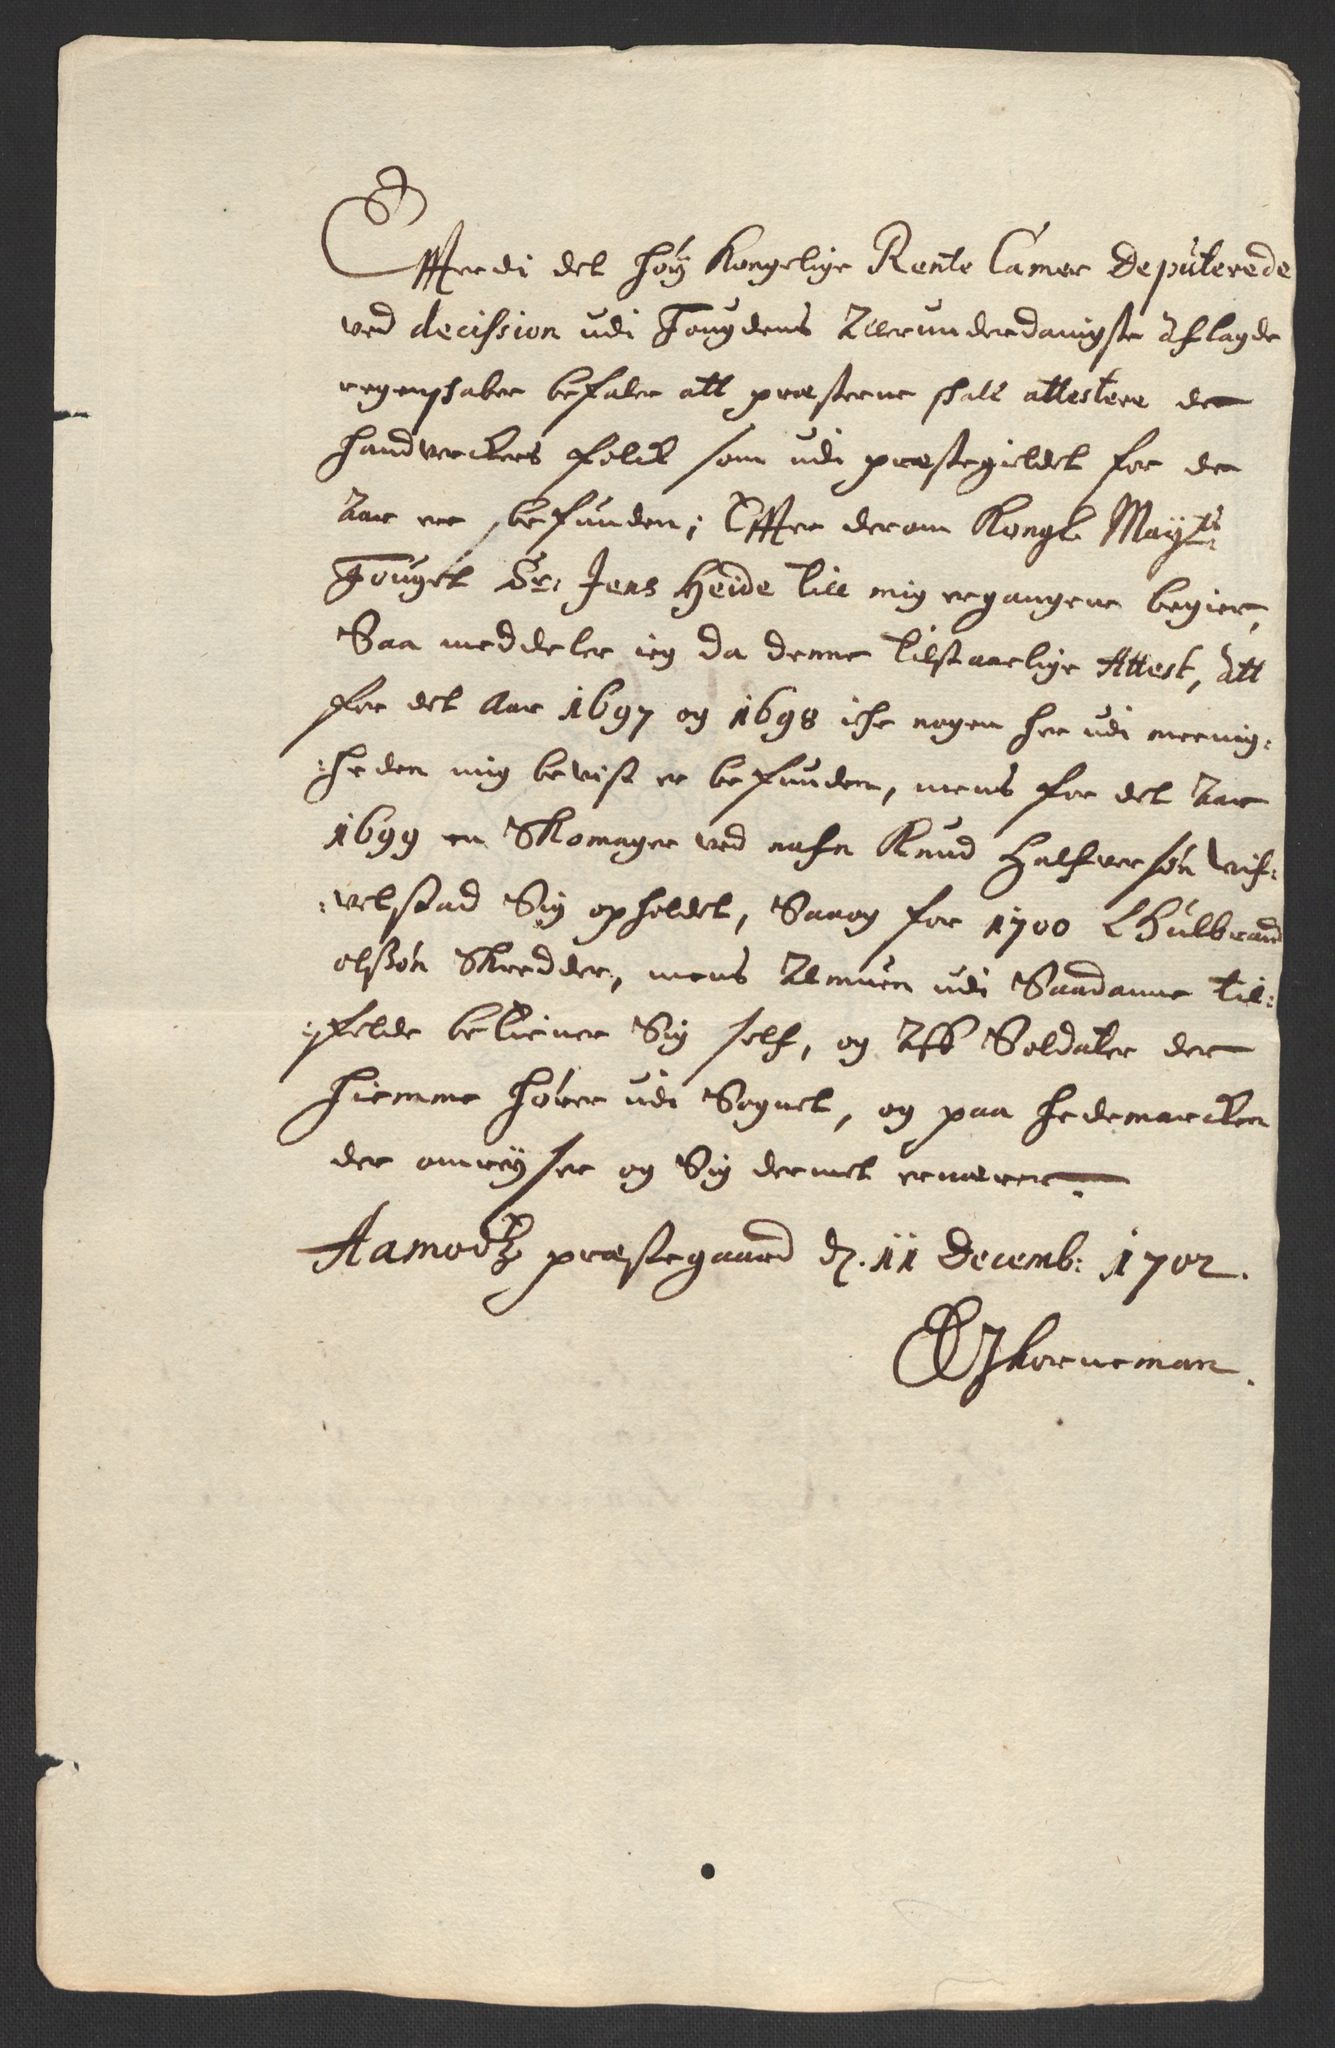 Efterdi det høÿ Kongelige Rente Camer Deputerede
ved decission udi Fougdens Allerunderdanigste Aflagde
regenskaber befaler att præsterne skall attestere de
handverckers folck som udi præstegieldet for de
Aar er befunden; Efter derom Kongl Mayts
Fouget Sr: Jens Heide till mig ergangene begier,
Saa meddeler ieg da denne tilstaarlige Attest, Att
for det Aar 1697 og 1698 iche nogen her udi meenig:
:heden mig bevist er befunden, mens for det Aar
1699 en Skomager ved nafn Knud Halfversøn
:velstad Sig opholdet, Saaog for 1700 Hulbrand
olssøn Skredder, mens Almuen udi Saadanne til:
:felde betiener Sig self, og Aff Soldater der
hiemme hører udi Sognet, og paa hedemarcken
der omreÿser og Sig dermet ernærer.
Aamodtz præstegaard d. 11 Decemb: 1702.
Korneman.